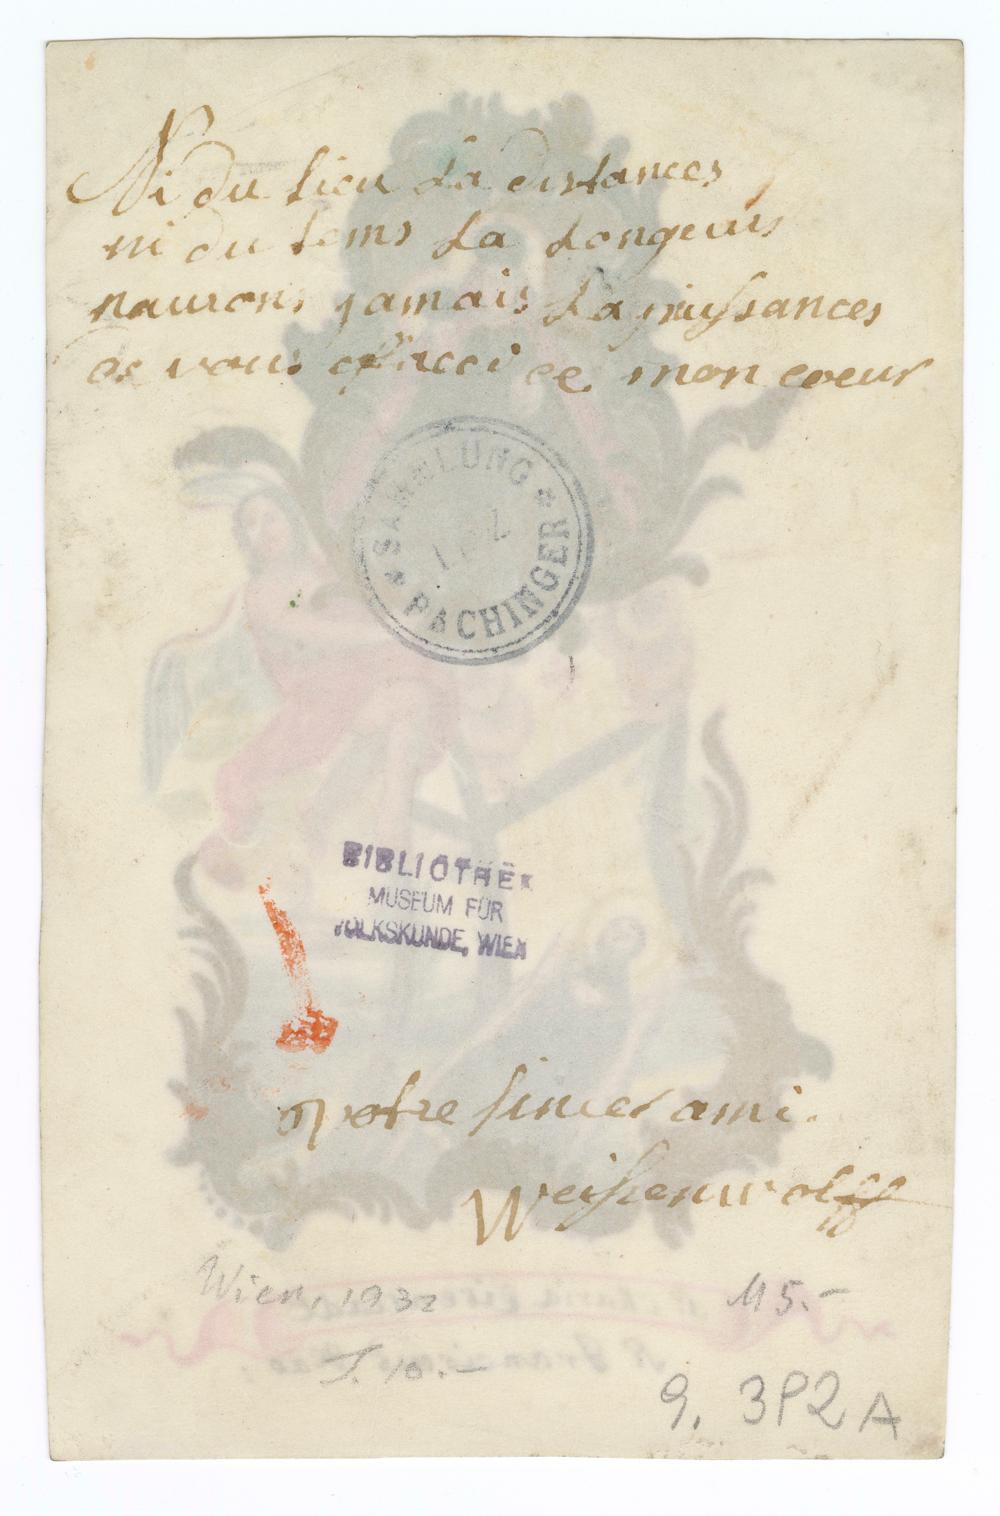 Ni du lieu La distances
ni du tems La Longeurs
naurons jamais La puissances
de vous effacer de mon coeur
SAMMLUNG
LINZ
PACHINGER
BIBLIOTHEK
MUSEUM FÜR
VOLKSKUNDE, WIEN
Votre sincer ami.
Weissenwolff
Wien, 1932
M5.-
10.-
9. 3P2 A